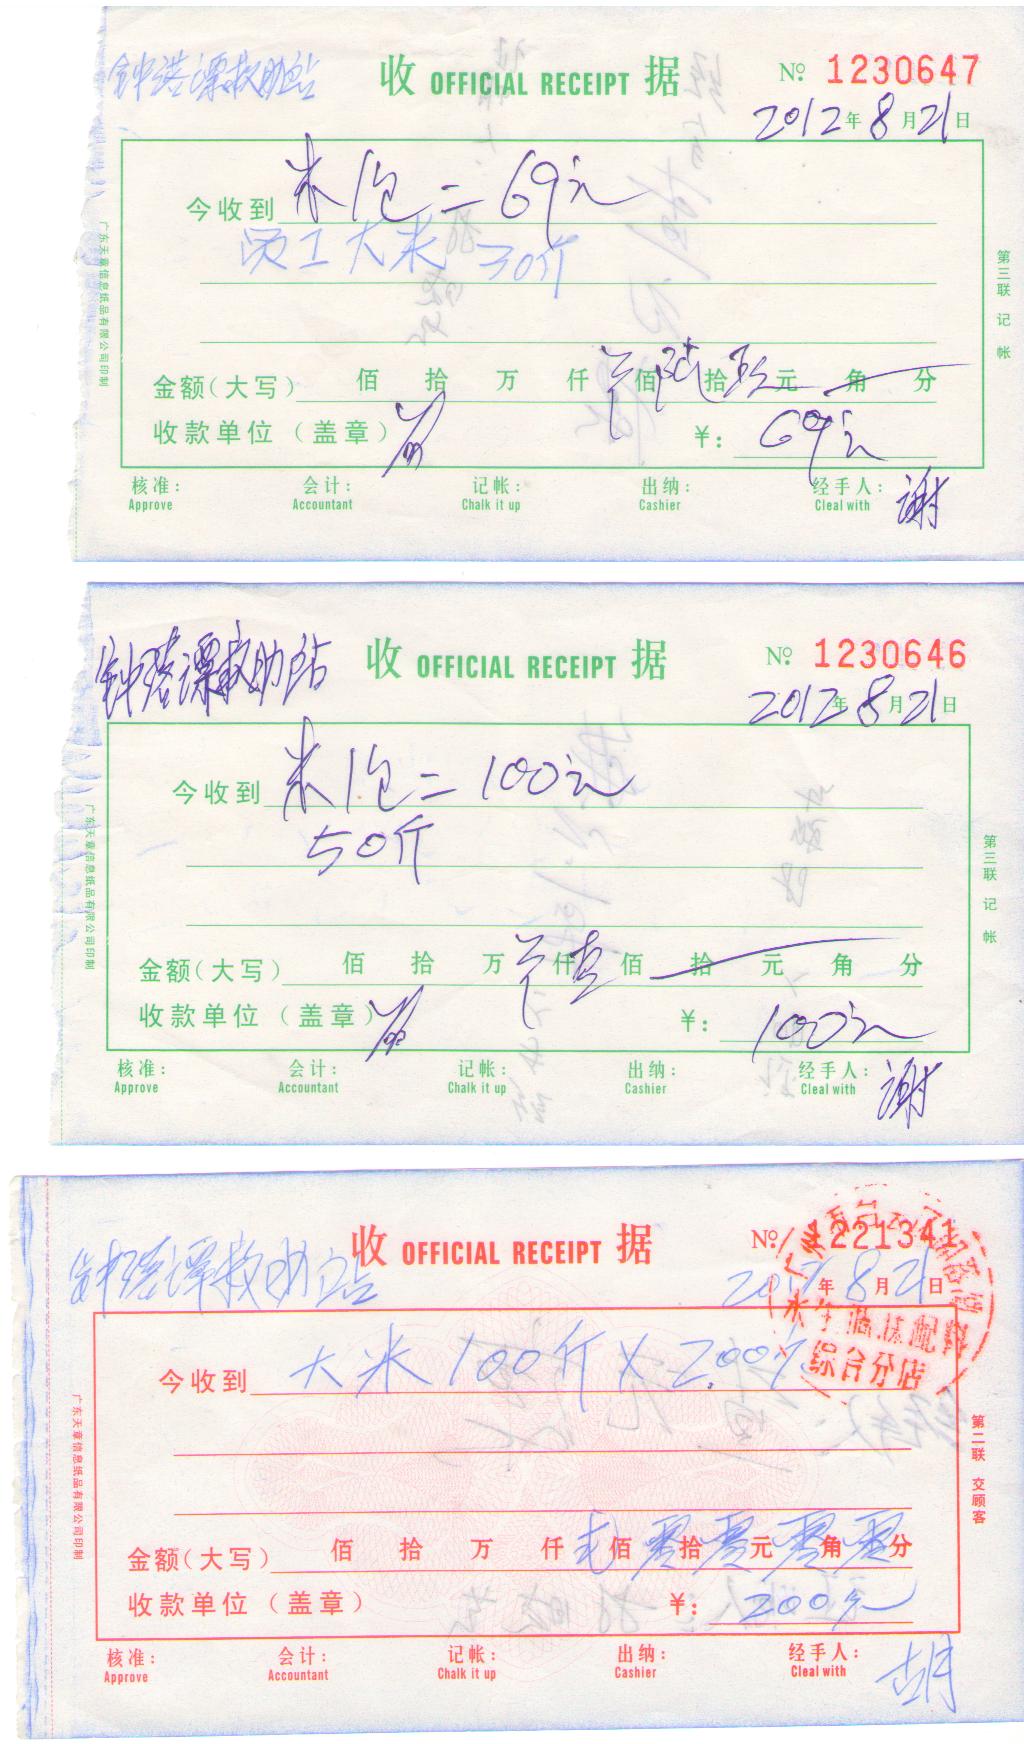 钟落潭救助站
收 OFFICIAL RECEIPT 据
№ 1230647
2012年8月21日
今收到 米1包=69元
员工大米 30斤
金额(大写) 佰 拾 万 仟 佰陆拾玖元 角 分
收款单位(盖章) ¥: 69元
核准: 会计: 记帐: 出纳: 经手人: 谢
Approve Accountant Chalk it up Cashier Cleal with
广东天章信息纸品有限公司印制
第三联 记帐
钟落潭救助站
收 OFFICIAL RECEIPT 据
№ 1230646
2012年8月21日
今收到 米1包=100元
50斤
金额(大写) 佰 拾 万 仟壹佰 拾 元 角 分
收款单位(盖章) ¥: 100元
核准: 会计: 记帐: 出纳: 经手人: 谢
Approve Accountant Chalk it up Cashier Cleal with
广东天章信息纸品有限公司印制
第三联 记帐
钟落潭救助站
收 OFFICIAL RECEIPT 据
№ 1221341
2012年8月21日
综合分店
今收到 大米 100斤 X 2.00元
金额(大写) 佰 拾 万 仟 佰零拾零元零角零分
收款单位(盖章) ¥: 200元
核准: 会计: 记帐: 出纳: 经手人: 胡
Approve Accountant Chalk it up Cashier Cleal with
广东天章信息纸品有限公司印制
第二联 交顾客